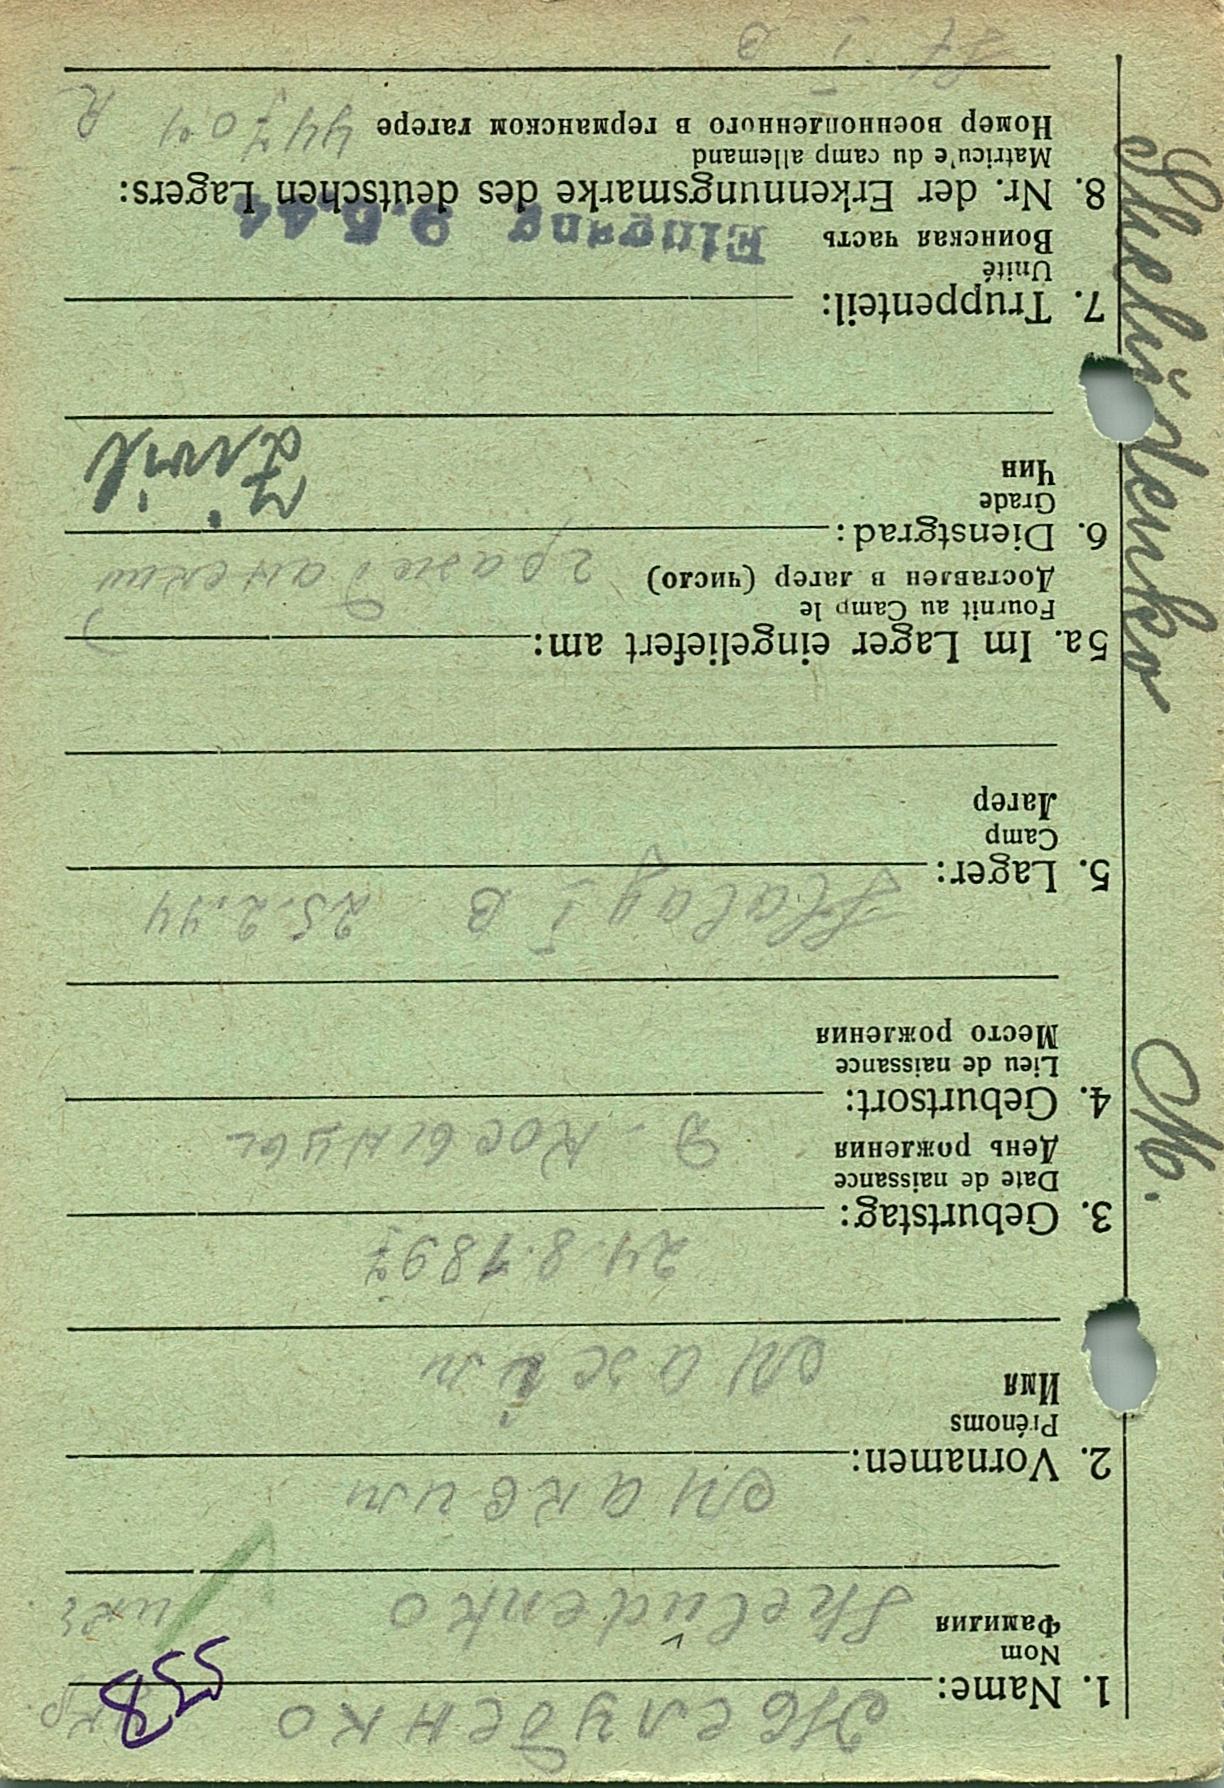 Shelüdenko M.
1. Name: Желуденко укр.
Nom
Фамилия Shelüdenko ukr.
558
2. Vornamen: Максим
Prénoms
Имя Maxim
3. Geburtstag: 24.8.1897
Date de naissance
День рождения
4. Geburtsort: д.
Lieu de naissance
Место рождения
5. Lager: Stalag I B 25.2.44
Camp
Лагер
5a. Im Lager eingeliefert am:
Fournit au Camp le
Доставлен в лагер (число)
6. Dienstgrad: гражданский
Grade
Чин Zivil
7. Truppenteil:
Unité
Воинская часть Eingang 9.5.44
8. Nr. der Erkennungsmarke des deutschen Lagers:
Matricu'e du camp allemand
Номер военнопленного в германском лагере 44704 R
St I B